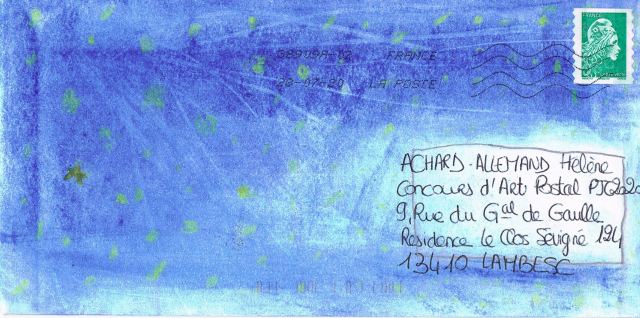 38919A-02 FRANCE
20-07-20 LA POSTE
FRANCE
ACHARD-ALLEMAND Hélène
Concours d'Art Postal PJG2020
9, Rue du Gal de Gaulle
Résidence le Clos Sévigné 124
13410 LAMBESC